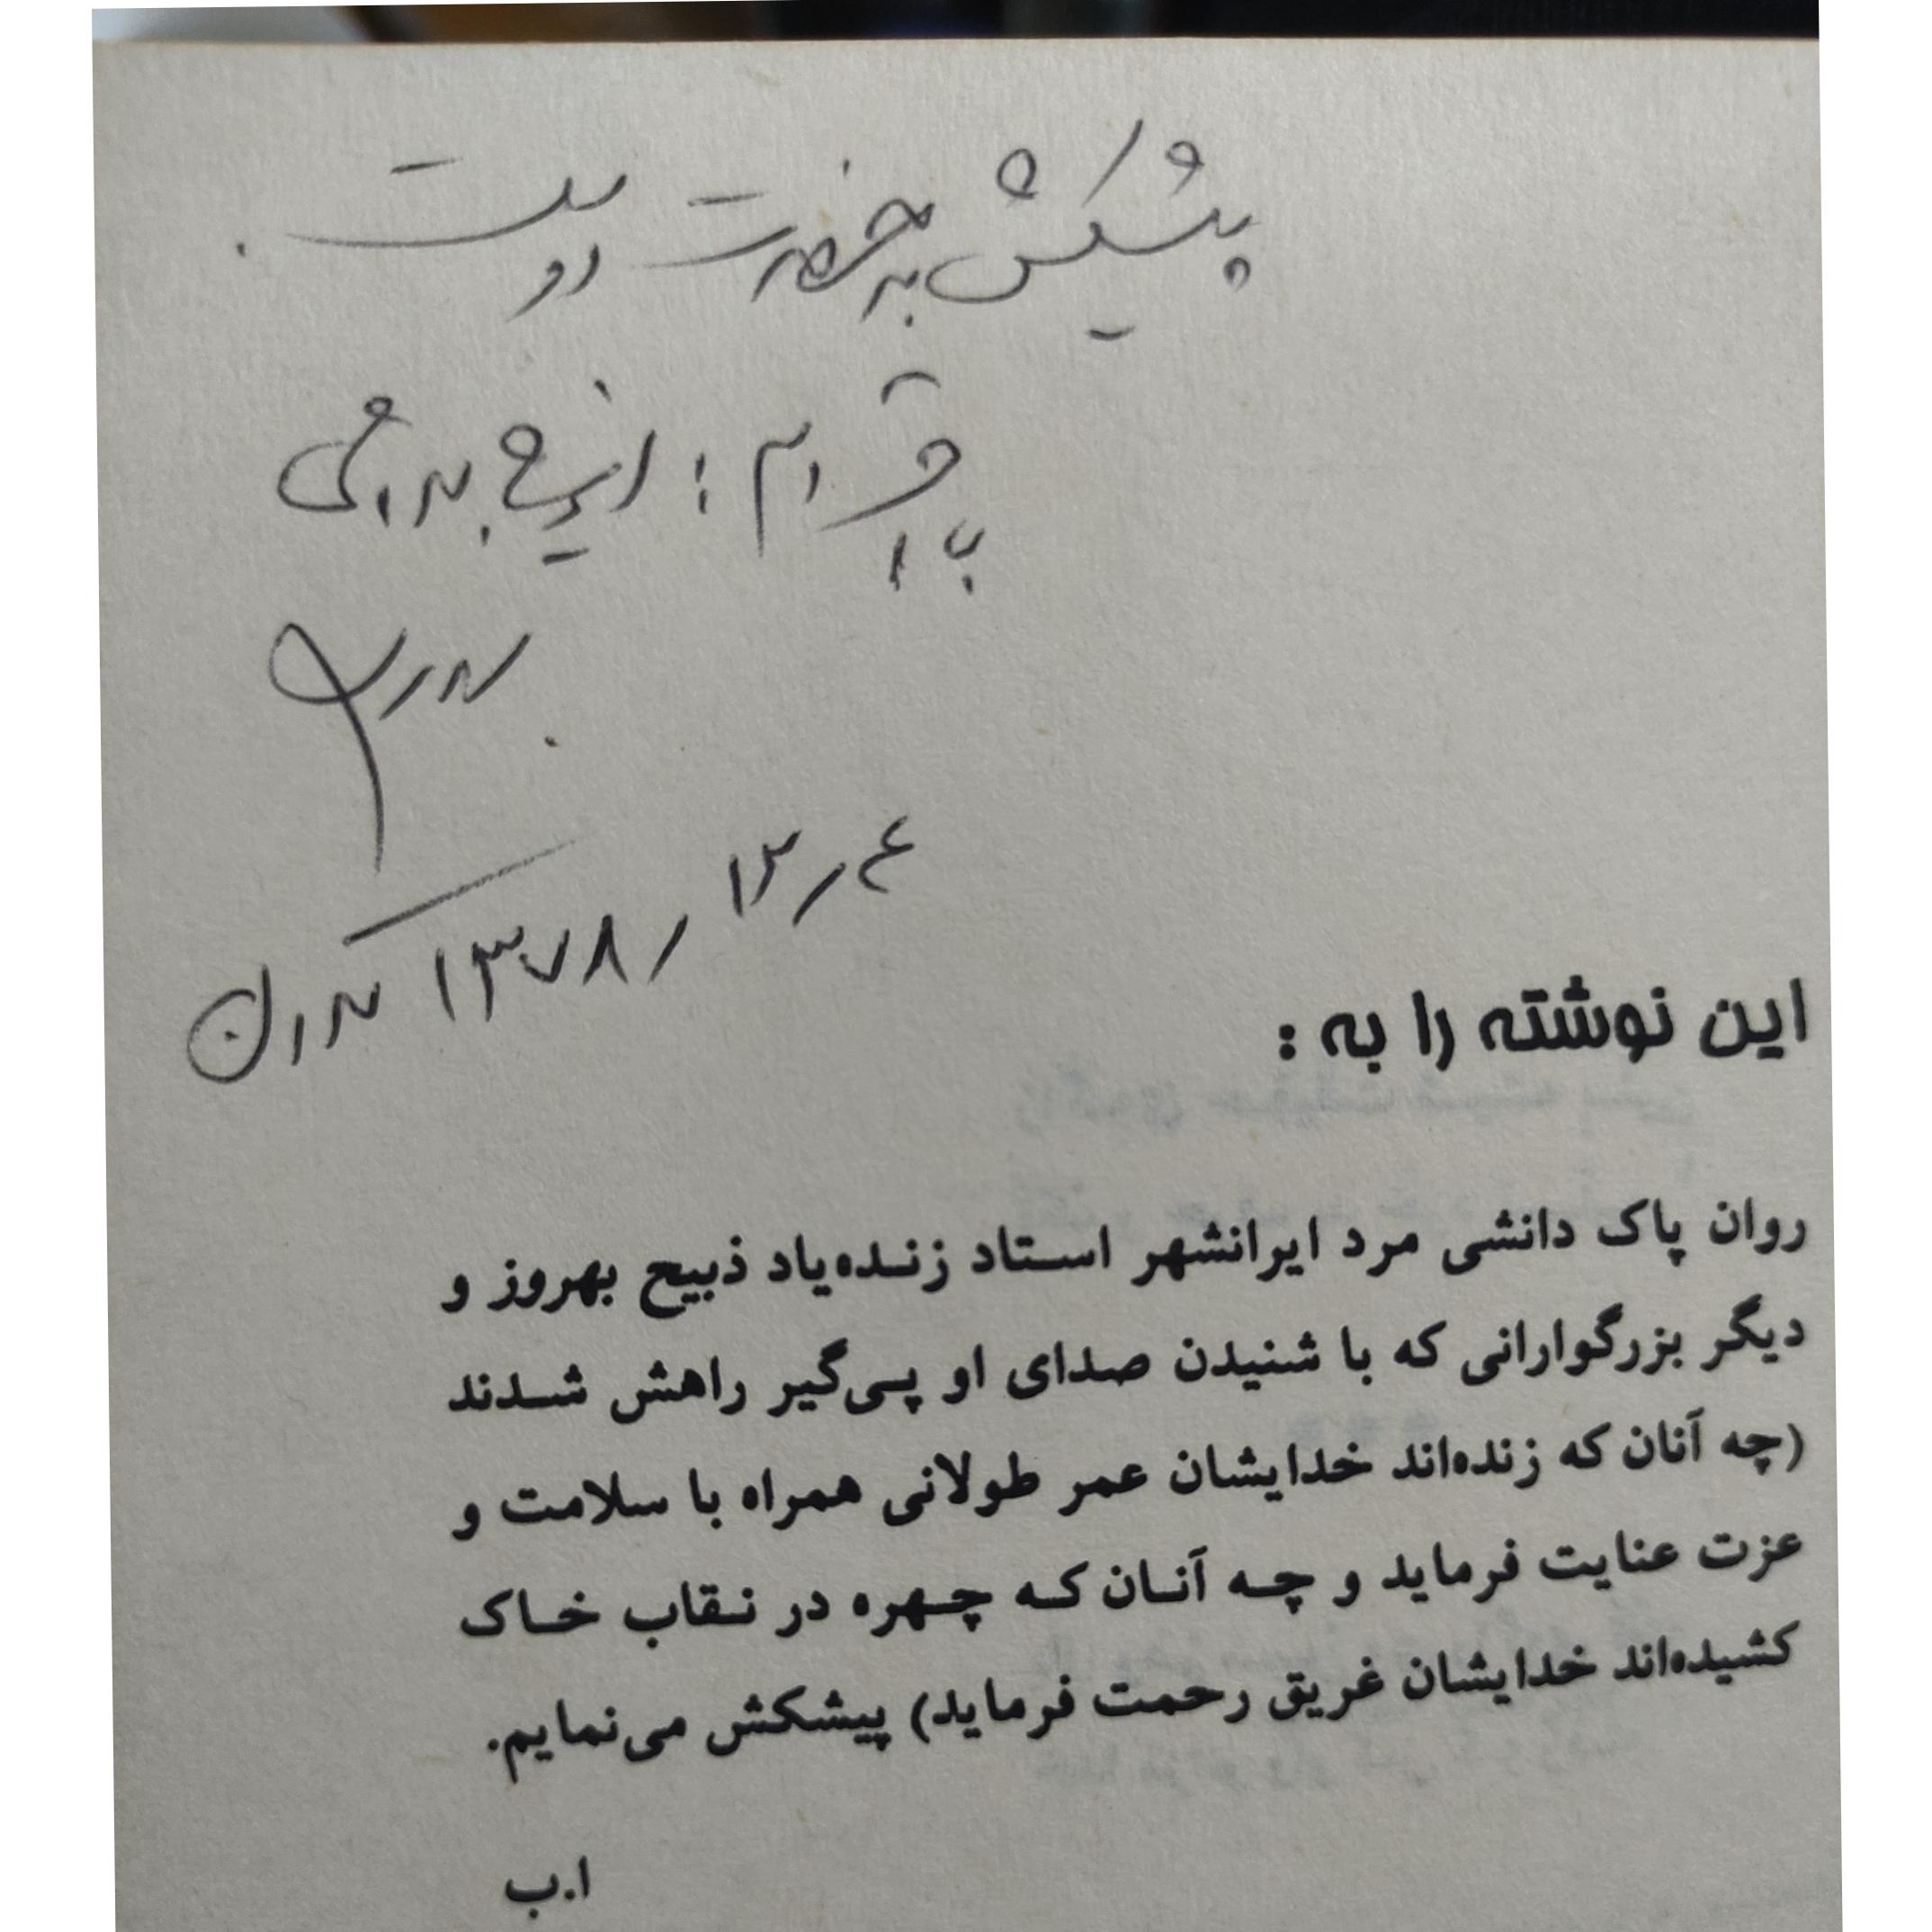 پیشکش به حضرت دوست.
با احترام؛ ایرج بهرامی
۴ر۱۲ر۱۳۷۸ تهران
این نوشته را به :
روان پاک دانشی مرد ایرانشهر استاد زنده‌یاد ذبیح بهروز و
دیگر بزرگوارانی که با شنیدن صدای او پی‌گیر راهش شدند
(چه آنان که زنده‌اند خدایشان عمر طولانی همراه با سلامت و
عزت عنایت فرماید و چه آنان که چهره در نقاب خاک
کشیده‌اند خدایشان غریق رحمت فرماید) پیشکش می‌نمایم.
ا.ب